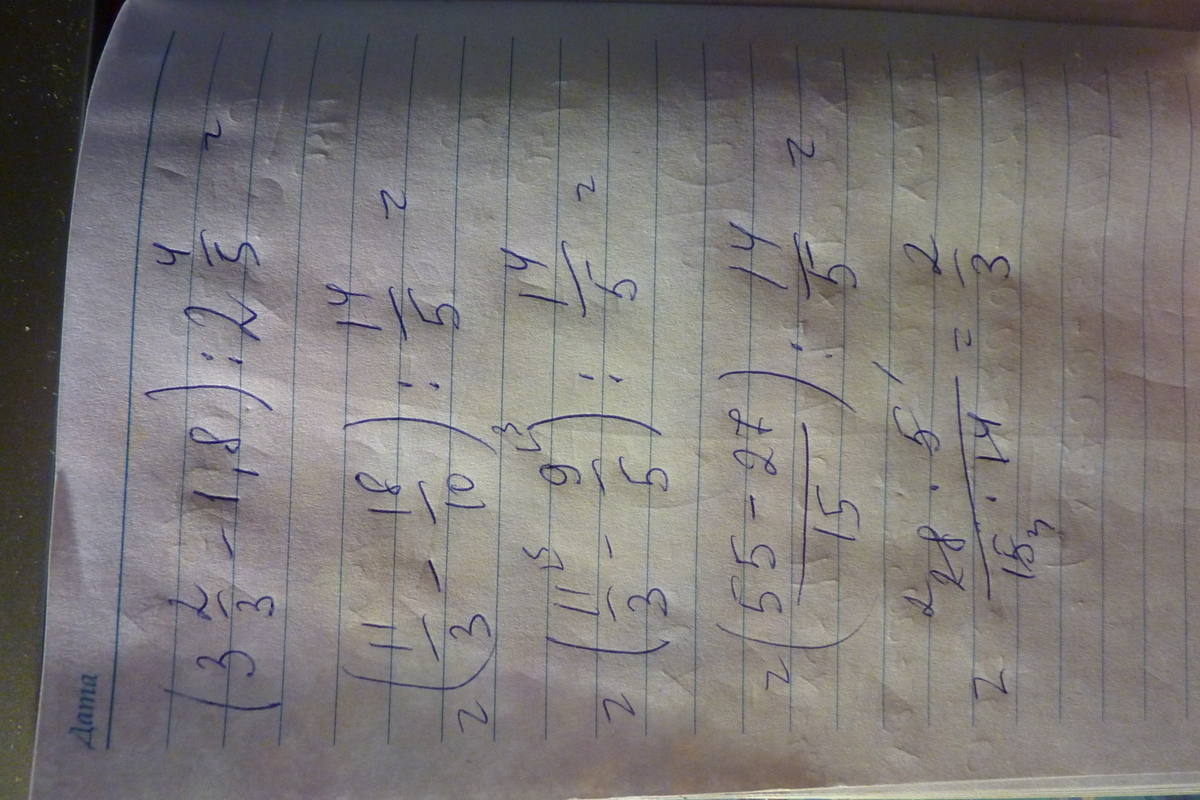 Дата
(3 2/3 - 1,8) : 2 4/5 =
= (11/3 - 18/10) : 14/5 =
= (11/3 ⁵ - 9/5 ³) : 14/5 =
= (55 - 27 / 15) : 14/5 =
= 28 ² · 5 ¹ / 15 ₃ · 14 = 2/3